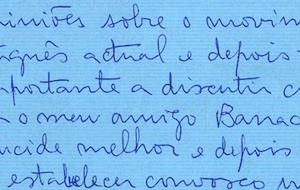 iniões sobre o movim
uguês actual e depois
mportante a discutir c
o meu amigo Banac
ucide melhor e depois
estabelecer convosco u